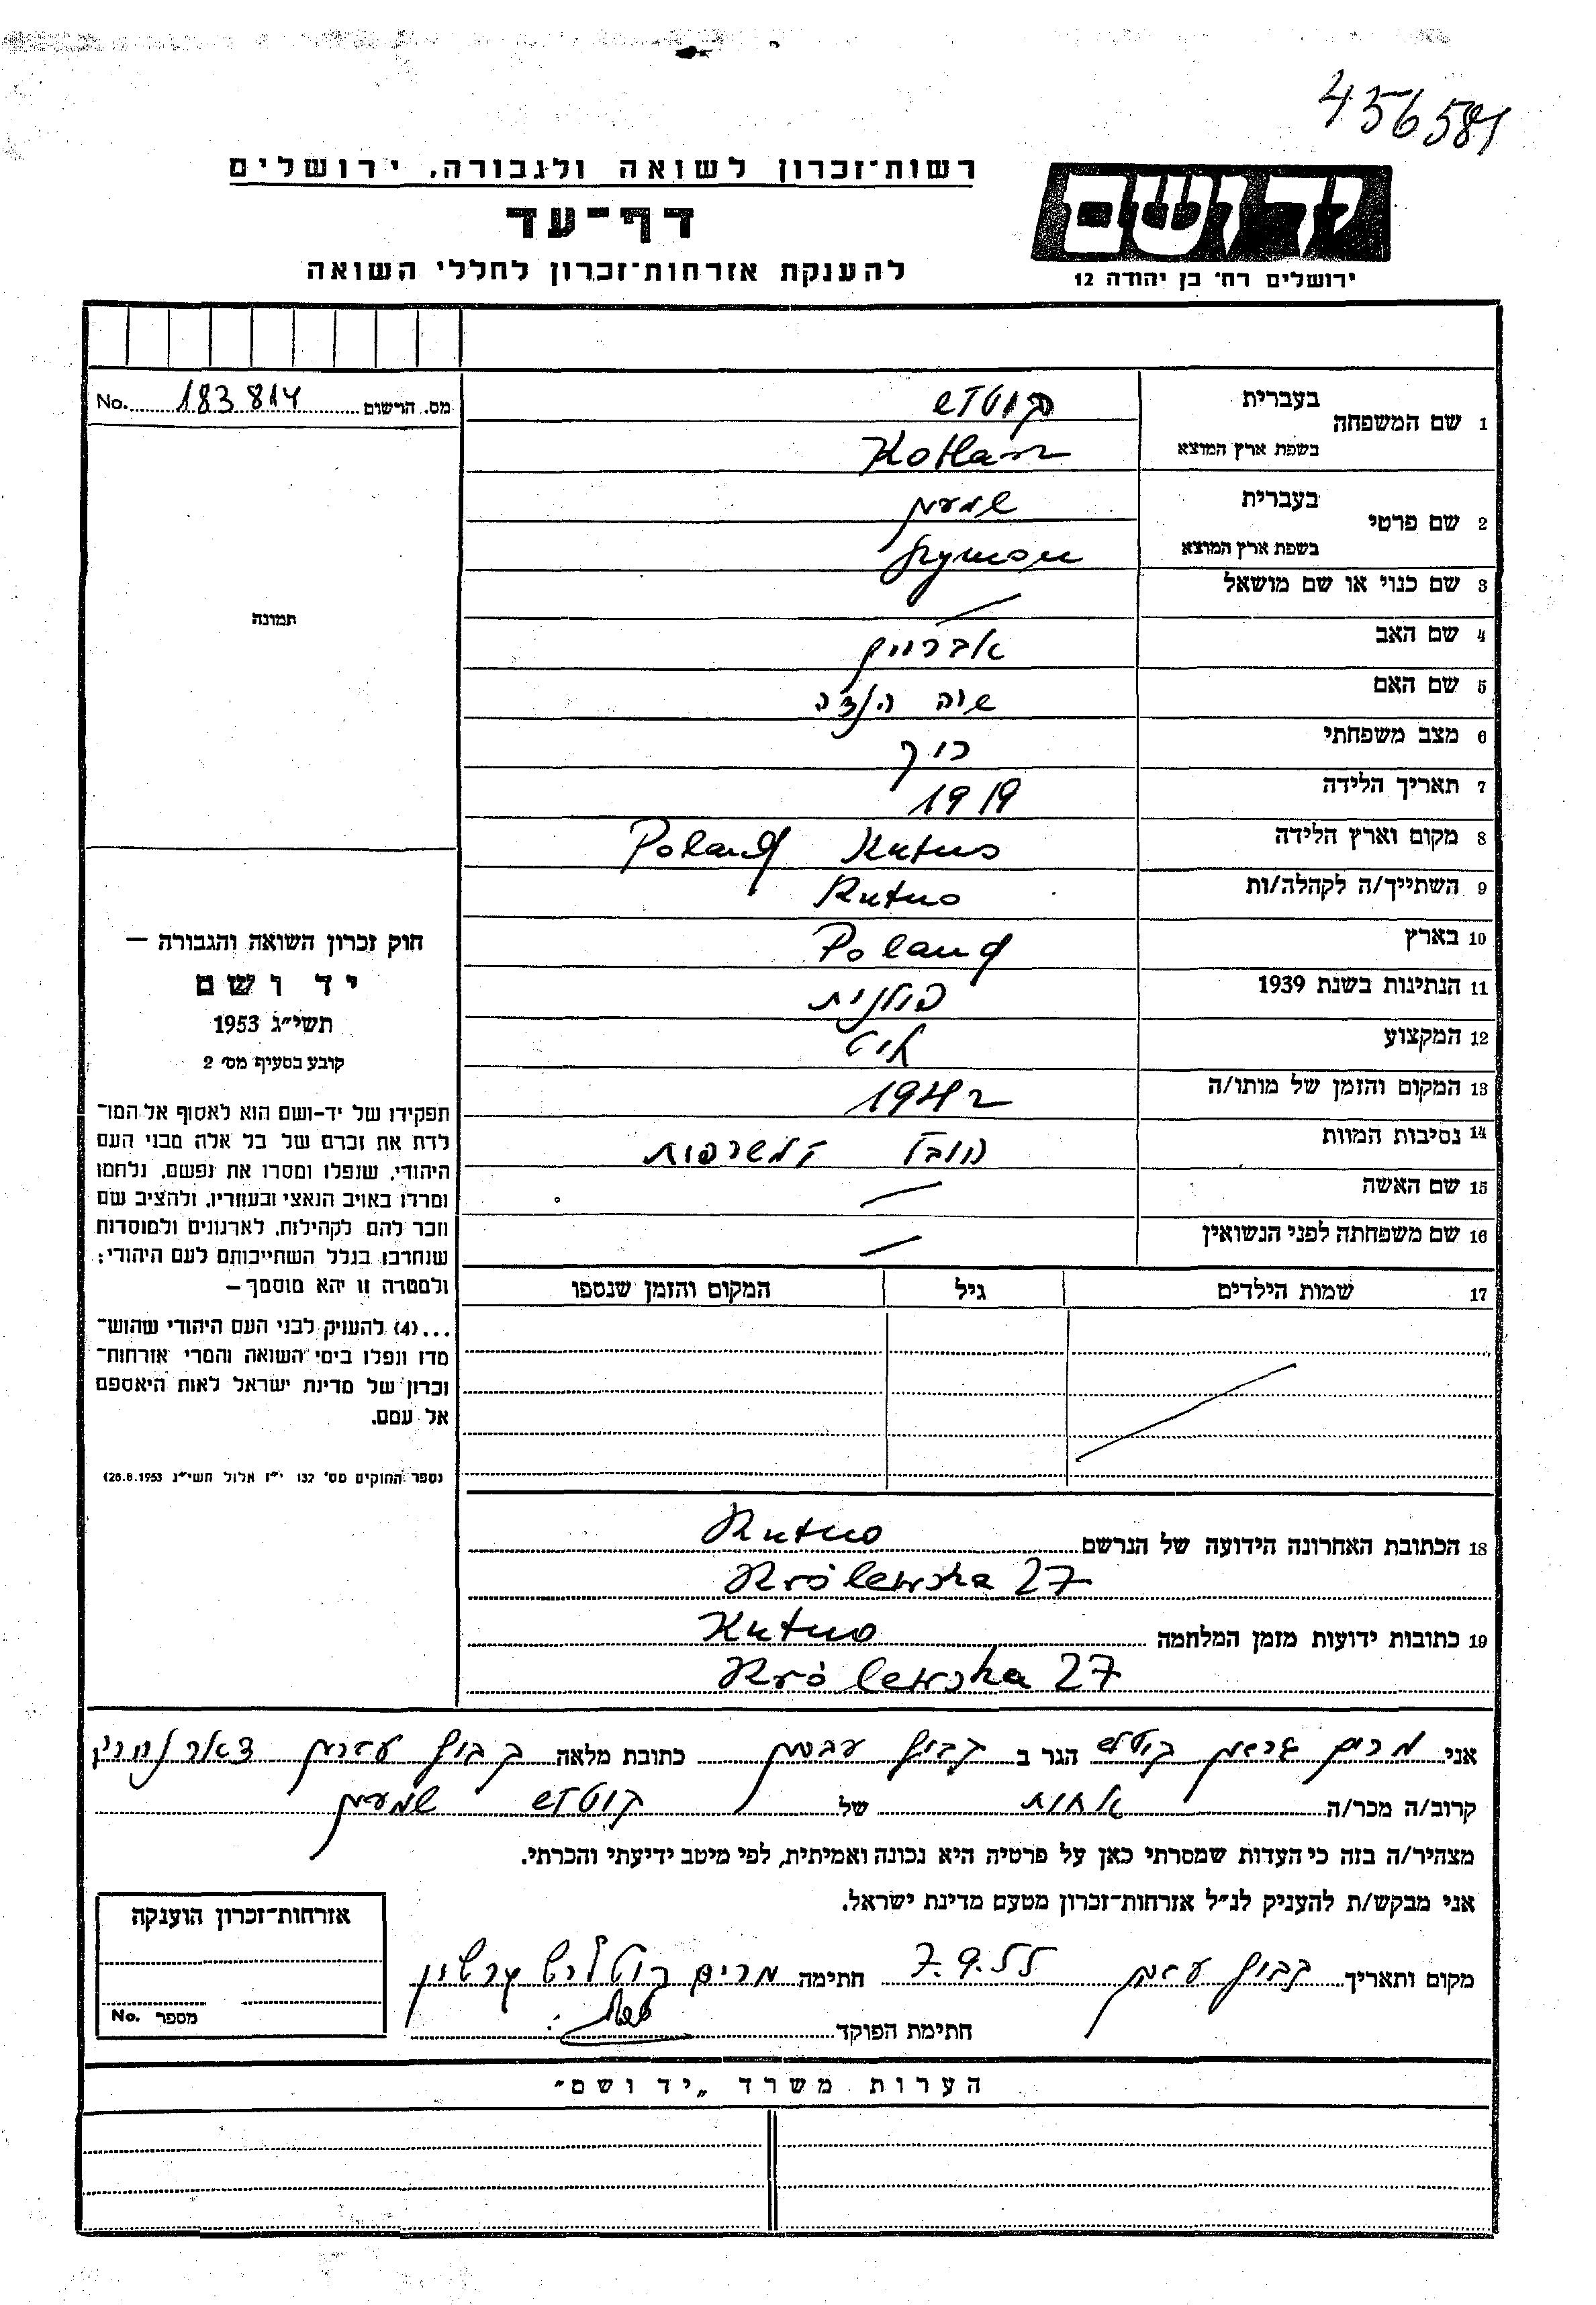 456581
רשות־זכרון לשואה ולגבורה, ירושלים
יד ושם
דף־עד
להענקת אזרחות־זכרון לחללי השואה
ירושלים רח' בן יהודה 12
מס. הרשום 183814 No.
תמונה
1 שם המשפחה בעברית
בשפת ארץ המוצא Kotlarz
2 שם פרטי בעברית שמעון
בשפת ארץ המוצא Szymon
3 שם כנוי או שם מושאל —
4 שם האב
5 שם האם שרה הינדה
6 מצב משפחתי
7 תאריך הלידה 1919
8 מקום וארץ הלידה Kutno Poland
9 השתייך/ה לקהלה/ות Kutno
10 בארץ Poland
11 הנתינות בשנת 1939 פולנית
12 המקצוע
13 המקום והזמן של מותו/ה 1942
14 נסיבות המוות הובל למשרפות
15 שם האשה —
16 שם משפחתה לפני הנשואין —
17 שמות הילדים גיל המקום והזמן שנספו
18 הכתובת האחרונה הידועה של הנרשם Kutno
Królewska 27
19 כתובות ידועות מזמן המלחמה Kutno
Królewska 27
חוק זכרון השואה והגבורה —
יד ושם
תשי״ג 1953
קובע בסעיף מס׳ 2
תפקידו של יד-ושם הוא לאסוף אל המו־
לדת את זכרם של כל אלה מבני העם
היהודי, שנפלו ומסרו את נפשם, נלחמו
ומרדו באויב הנאצי ובעוזריו, ולהציב שם
וזכר להם לקהילות, לארגונים ולמוסדות
שנחרבו בגלל השתייכותם לעם היהודי;
ולמטרה זו יהא מוסמך —
...(4) להעניק לבני העם היהודי שהוש־
מדו ונפלו בימי השואה והמרי אזרחות־
זכרון של מדינת ישראל לאות היאספם
אל עמם.
(ספר החוקים מס׳ 132 י״ז אלול תשי״ג 28.8.1953)
אני מרים הגר ב קבוץ כתובת מלאה קבוץ דאר נחריה
קרוב/ה מכר/ה אחות של שמעון
מצהיר/ה בזה כי העדות שמסרתי כאן על פרטיה היא נכונה ואמיתית, לפי מיטב ידיעתי והכרתי.
אני מבקש/ת להעניק לנ״ל אזרחות־זכרון מטעם מדינת ישראל.
מקום ותאריך קבוץ 7.9.55 חתימה מרים
חתימת הפוקד
אזרחות־זכרון הוענקה
מספר No.
הערות משרד „יד ושם״